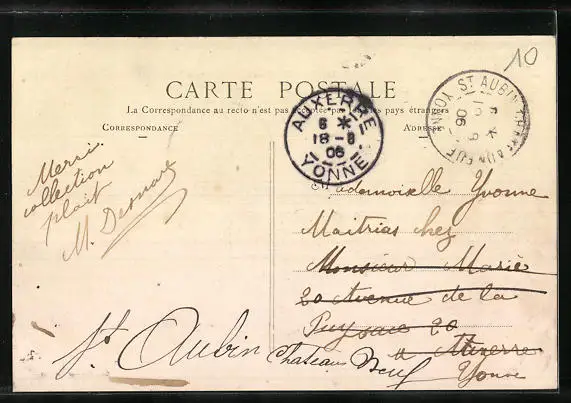 10
CARTE POSTALE
La Correspondance au recto n'est pas acceptée par tous pays étrangers
CORRESPONDANCE
ADRESSE
AUXERRE
6 *
18 - 8
06
YONNE
ST AUBIN CHAT NEUF
YONNE
Merci.
collection
plait
M.
Mademoiselle Yvonne
Maitrias chez
Monsieur Marié
20 Avenue de la
Puysaie 20
a Auxerre
Yonne
St Aubin Chateau Neuf